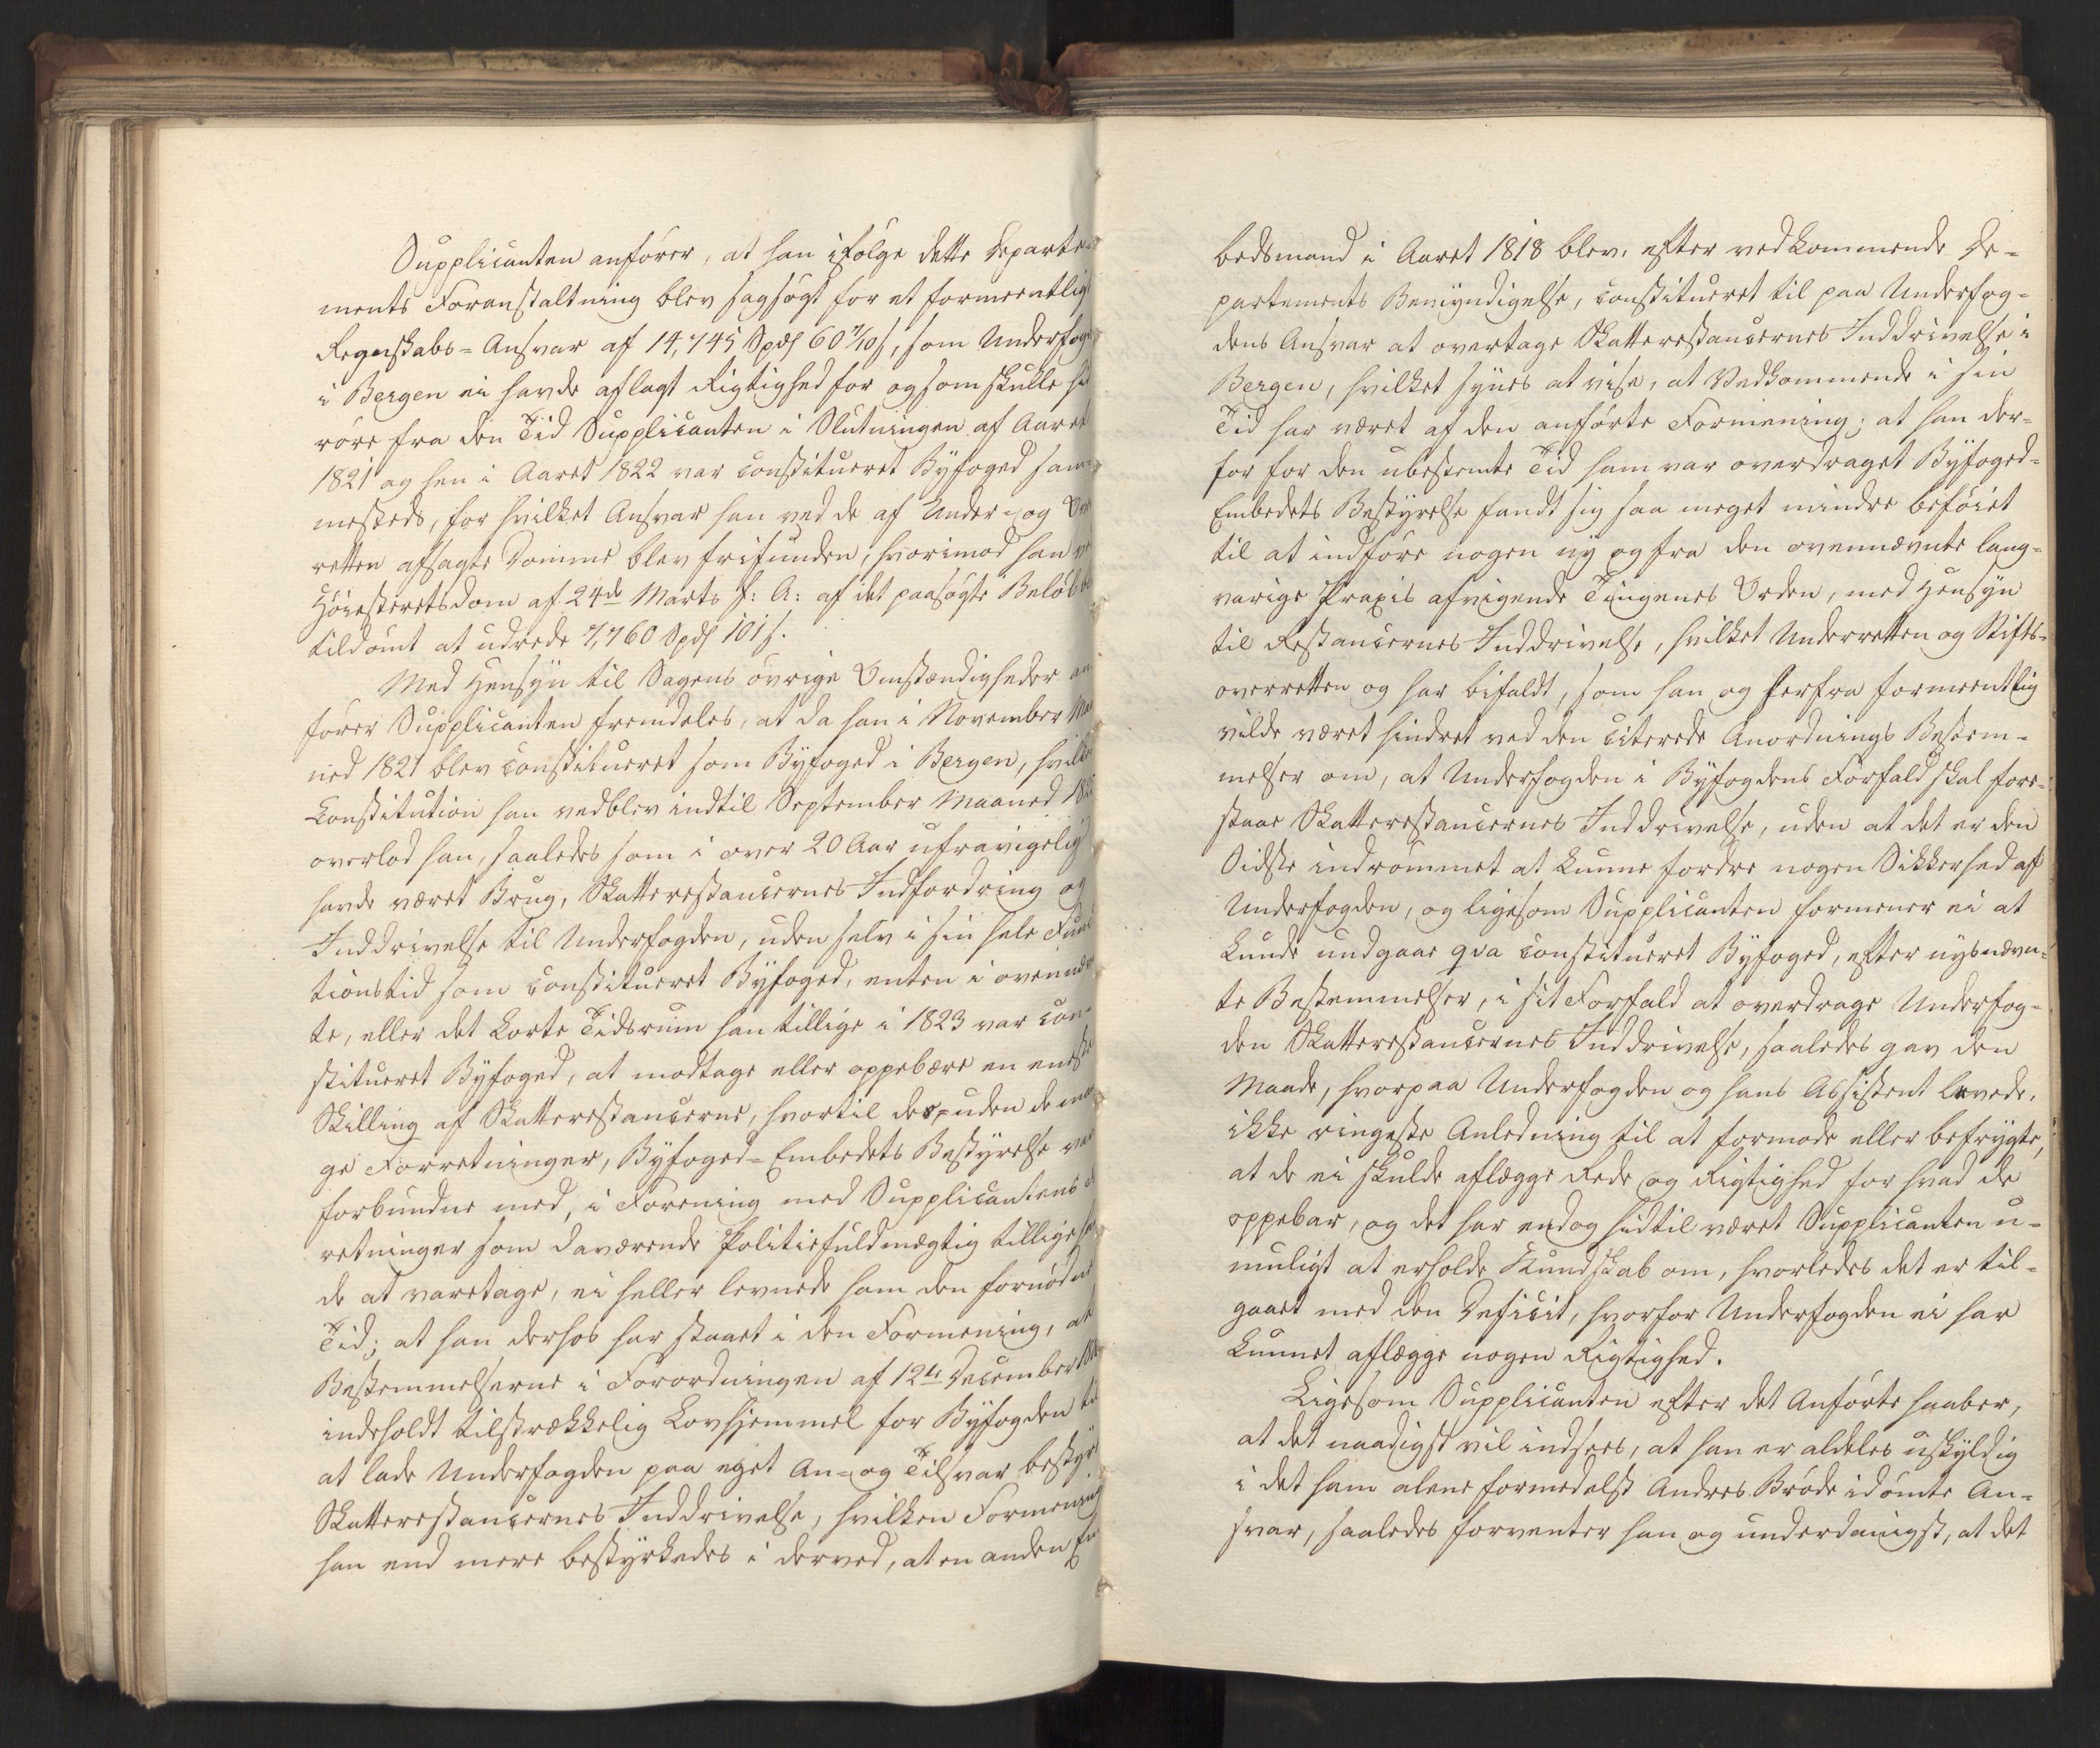 Supplicanten anfører, at han ifølge dette Departe-
ments Foranstaltning blev sagsøgt for et formeentligt
Regnskabs-Ansvar af 14,745 Spd 60 7/10 s, som Underfog
i Bergen ei havde aflagt Rigtighed for og som skulle hid
røre fra den Tid Supplicanten i Slutningen af Aaret
1821 og hen i Aaret 1822 var constitueret Byfoged sam-
mesteds, for hvilket Ansvar han ved de af Under- og Over
retten afsagte Domme blev frifunden, hvorimod han ve
Høiesteretsdom af 24de Marts f: A: af det paasøgte Beløb be
tildømt at udrede 7,760 Spd 101 s.
Med Hensyn til Sagens øvrige Omstændigheder an
fører Supplicanten fremdeles, at da han i November Maa
ned 1821 blev constitueret som Byfoged i Bergen, hvilke
Constitution han vedblev indtil September Maaned 182
overlod han, saaledes som i over 20 Aar ufravigelig
havde været Brug, Skatterestancernes Indfordring og
Inddrivelse til Underfogden, uden selv i sin hele Func
tionstid som constitueret Byfoged, enten i ovennævn
te, eller det korte Tidsrum han tillige i 1823 var con-
stitueret Byfoged, at modtage eller oppebære en eneste
Skilling af Skatterestancerne, hvortil des-uden de man
ge Forretninger, Byfoged-Embedets Bestyrelse var
forbundne med, i Forening med Supplicantens
retninger som daværende Politiefuldmægtig tillige hav
de at varetage, ei heller levnede ham den fornødne
Tid; at han derhos har staaet i den Formening, at
Bestemmelserne i Forordningen af 12te December 18
indeholdt tilstrækkelig Lovhjemmel for Byfogden til
at lade Underfogden paa eget An- og Tilsvar bestyre
Skatterestancernes Inddrivelse, hvilken Formening
han end mere bestyrkedes i derved, at en anden Em
bedsmand i Aaret 1818 blev, efter vedkommende De-
partements Bemyndigelse, constitueret til paa Underfog-
dens Ansvar at overtage Skatterestancernes Inddrivelse i
Bergen, hvilket synes at vise, at Vedkommende i sin
Tid har været af den anførte Formening; at han der-
for for den ubestemte Tid ham var overdraget Byfoged-
Embedets Bestyrelse fandt sig saa meget mindre beføiet
til at indføre nogen ny og fra den ovennævnte lang-
varige Praxis afvigende Tingenes Orden, med Hensyn
til Restancernes Inddrivelse, hvilket Underretten og Stifts-
overretten og har bifaldt, som han og herfra formeentlig
vilde været hindret ved den citerede Anordnings Bestem-
melser om, at Underfogden i Byfogdens Forfald skal fore-
staae Skatterestancernes Inddrivelse, uden at det er den
Sidste indrømmet at kunne fordre nogen Sikkerhed af
Underfogden, og ligesom Supplicanten formener ei at
kunde undgaae qva constitueret Byfoged, efter nysnævn-
te Bestemmelser, i sit Forfald at overdrage Underfog-
den Skatterestancernes Inddrivelse, saaledes gav den
Maade, hvorpaa Underfogden og hans Assistent levede,
ikke ringeste Anledning til at formode eller befrygte,
at de ei skulde aflægge Rede og Rigtighed for hvad de
oppebar, og det har endog hidtil været Supplicanten u-
muligt at erholde Kundskab om, hvorledes det er til-
gaaet med den Deficit, hvorfor Underfogden ei har
kunnet aflægge nogen Rigtighed.
Ligesom Supplicanten efter det Anførte haaber,
at det naadigst vil indsees, at han er aldeles uskyldig
i det ham alene formedelst Andres Brøde idømte An-
svar, saaledes forventer han og underdanigst, at det